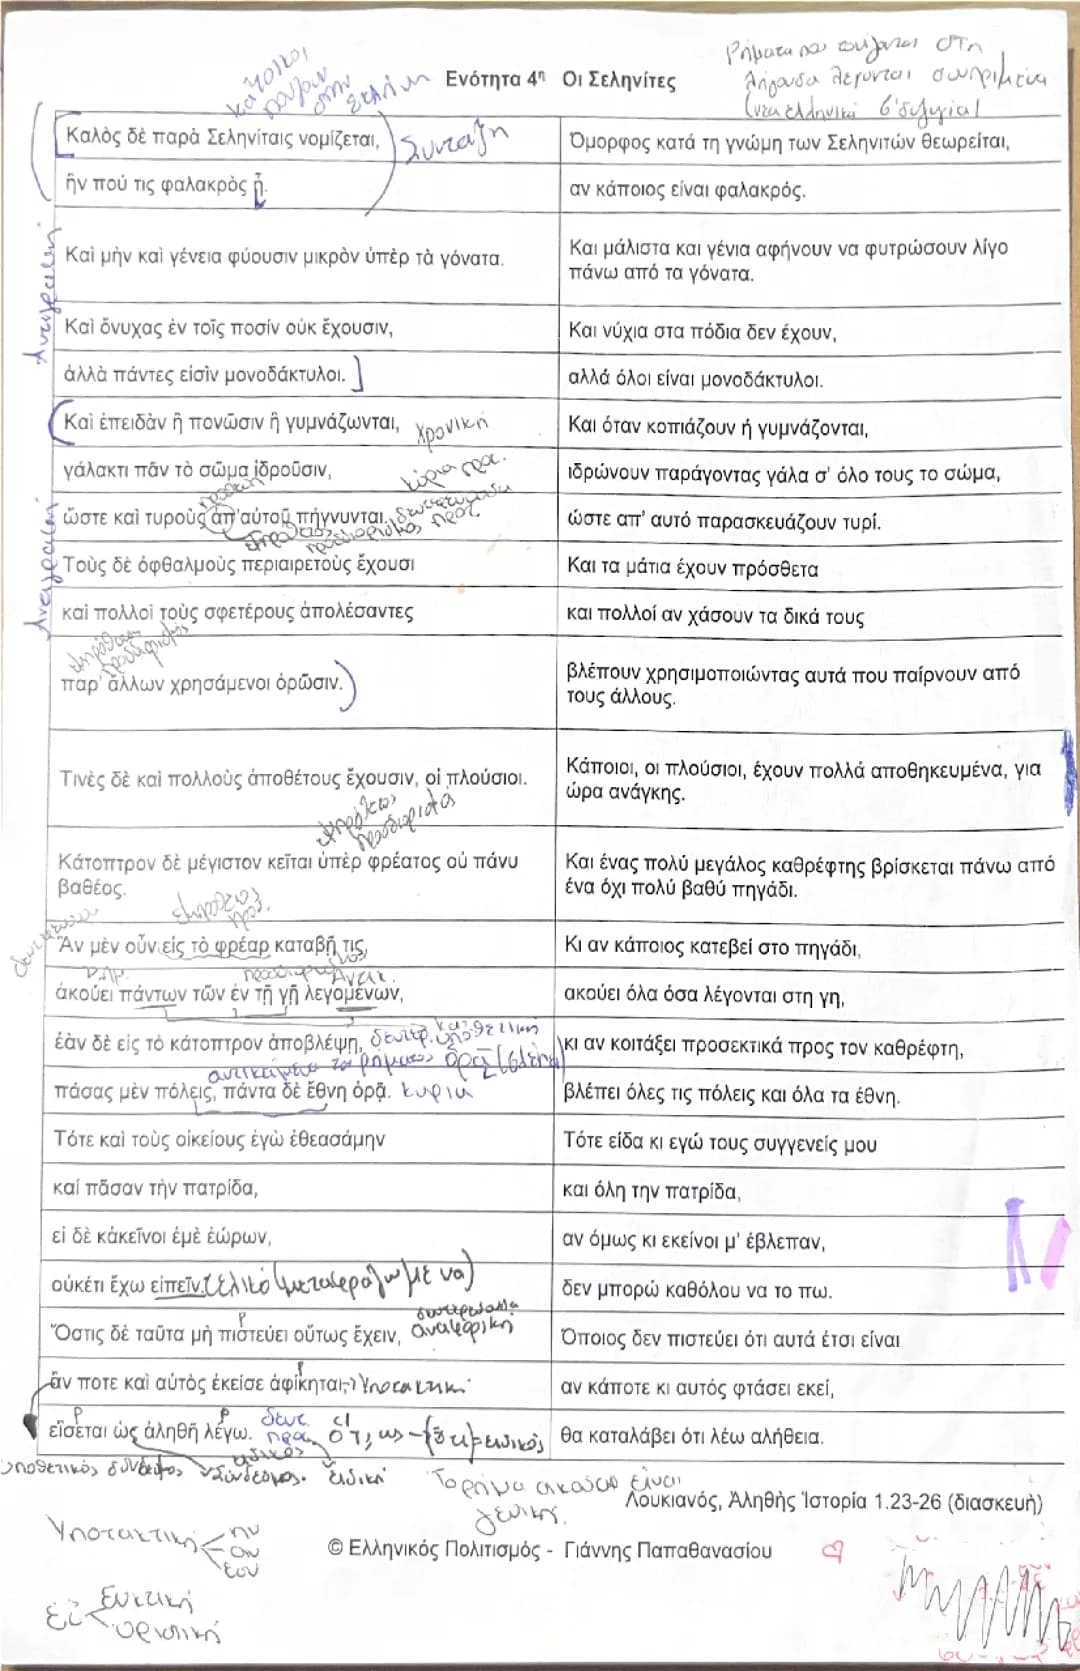 κάτοικοι
στην
Σελήνη
Ενότητα 4η Οι Σεληνίτες
Ρήματα που τονίζονται στη
λήγουσα λέγονται συνηρημένα
(νεα ελληνικά β' συζυγία)
Καλὸς δὲ παρὰ Σεληνίταις νομίζεται,
Σύνταξη
Όμορφος κατά τη γνώμη των Σεληνιτών θεωρείται,
ἤν πού τις φαλακρὸς ᾖ.
αν κάποιος είναι φαλακρός.
Καὶ μὴν καὶ γένεια φύουσιν μικρὸν ὑπὲρ τὰ γόνατα.
Και μάλιστα και γένια αφήνουν να φυτρώσουν λίγο
πάνω από τα γόνατα.
Καὶ ὄνυχας ἐν τοῖς ποσίν οὐκ ἔχουσιν,
Και νύχια στα πόδια δεν έχουν,
ἀλλὰ πάντες εἰσὶν μονοδάκτυλοι.
αλλά όλοι είναι μονοδάκτυλοι.
Αντιγραφή
Καὶ ἐπειδὰν ἢ πονῶσιν ἢ γυμνάζωνται,
χρονική
Και όταν κοπιάζουν ή γυμνάζονται,
γάλακτι πᾶν τὸ σῶμα ἱδροῦσιν,
κύρια προτ.
ιδρώνουν παράγοντας γάλα σ' όλο τους το σώμα,
ὥστε καὶ τυροὺς ἀπ' αὐτοῦ πήγνυνται.
δευτερεύουσα
προτ.
εμπρόθετος
προσδιορισμός
ώστε απ' αυτό παρασκευάζουν τυρί.
Αντιγραφή
Τοὺς δὲ ὀφθαλμοὺς περιαιρετοὺς ἔχουσι
Και τα μάτια έχουν πρόσθετα
καὶ πολλοὶ τοὺς σφετέρους ἀπολέσαντες
και πολλοί αν χάσουν τα δικά τους
εμπρόθετος
προσδιορισμός
παρ' ἄλλων χρησάμενοι ὁρῶσιν.
βλέπουν χρησιμοποιώντας αυτά που παίρνουν από
τους άλλους.
Τινὲς δὲ καὶ πολλοὺς ἀποθέτους ἔχουσιν, οἱ πλούσιοι.
Κάποιοι, οι πλούσιοι, έχουν πολλά αποθηκευμένα, για
ώρα ανάγκης.
Κάτοπτρον δὲ μέγιστον κεῖται ὑπὲρ φρέατος οὐ πάνυ
βαθέος.
Και ένας πολύ μεγάλος καθρέφτης βρίσκεται πάνω από
ένα όχι πολύ βαθύ πηγάδι.
Ἂν μὲν οὖν εἰς τὸ φρέαρ καταβῇ τις,
Κι αν κάποιος κατεβεί στο πηγάδι,
ἀκούει πάντων τῶν ἐν τῇ γῇ λεγομένων,
ακούει όλα όσα λέγονται στη γη,
ἐὰν δὲ εἰς τὸ κάτοπτρον ἀποβλέψῃ,
δευτερ. υποθετική
κι αν κοιτάξει προσεκτικά προς τον καθρέφτη,
αντικείμενα το ρήματος ὁρᾷ
πάσας μὲν πόλεις, πάντα δὲ ἔθνη ὁρᾷ.
κυρια
βλέπει όλες τις πόλεις και όλα τα έθνη.
Τότε καὶ τοὺς οἰκείους ἐγὼ ἐθεασάμην
Τότε είδα κι εγώ τους συγγενείς μου
καί πᾶσαν τὴν πατρίδα,
και όλη την πατρίδα,
εἰ δὲ κἀκεῖνοι ἐμὲ ἑώρων,
αν όμως κι εκείνοι μ' έβλεπαν,
οὐκέτι ἔχω εἰπεῖν.
τελικό (μεταφράζω με να)
δεν μπορώ καθόλου να το πω.
Ὅστις δὲ ταῦτα μὴ πιστεύει οὕτως ἔχειν,
δευτερεύουσα
αναφορική
Όποιος δεν πιστεύει ότι αυτά έτσι είναι
ἄν ποτε καὶ αὐτὸς ἐκεῖσε ἀφίκηται,
Υποτακτική
αν κάποτε κι αυτός φτάσει εκεί,
εἴσεται ὡς ἀληθῆ λέγω.
θα καταλάβει ότι λέω αλήθεια.
υποθετικός σύνδεσμος
σύνδεσμος
ειδική
Το ρήμα ακούω είναι
γενική.
Λουκιανός, Ἀληθὴς Ἱστορία 1.23-26 (διασκευή)
Υποτακτική
ην
αν
εαν
© Ελληνικός Πολιτισμός - Γιάννης Παπαθανασίου
Εἰ
Ευκτική
οριστική